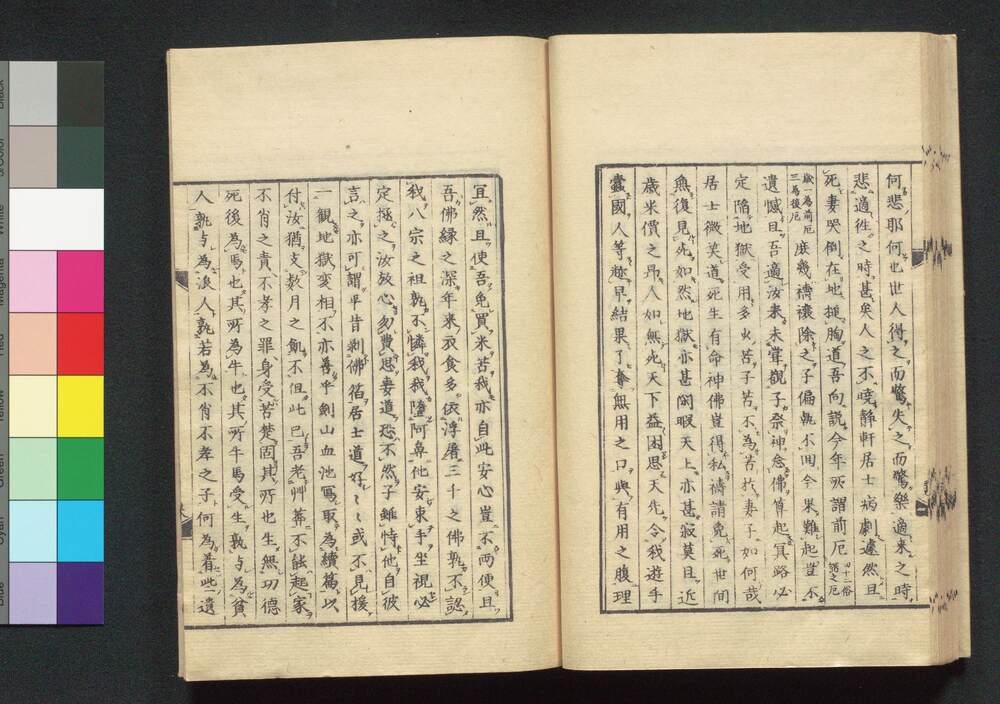 何悲耶何也世人得之而驚失之而驚樂適来之時
悲適徃之時甚矣人之不曉静軒居士病劇遽然且
死妻哭倒在地搥胸道吾向説今年所謂前厄四十二俗謂之厄
歳一為前厄三為後厄庶幾禱禳除之子偏執不囘今果難起豈不
遺憾且吾適汝来未甞觀子祭神念佛算起冥路必
定陷地獄受用多少苦子苦不為苦抆妻子如何哉
居士微笑道死生有命神佛豈得私禱請免死世间
無復見死如然地獄亦甚閑暇天上亦甚寂莫且近
歳米價之昂人如無死天下益困思天先令我遊手
蠹國人等斃早結果了奪無用之口與有用之腹理
宜然且使吾免買米苦我亦自此安心豈不両便且
吾佛縁之深年来衣食多依浮屠三十之佛孰不認
我八宗之祖孰不憐我我墮阿鼻他安束手坐視必
定拯之汝放心勿費思妻道恐不然子雖恃他自彼
言之亦可謂平昔剥佛箔居士道好〻或不見援
一觀地獄変相不亦善乎劍山血池冩取為續篇以
付汝猶支数月之飢不但此已吾老艸莽不能起家
不肖之責不孝之罪身受苦楚固其所也生無功德
死後為馬也其所為牛也其所牛馬受生孰与為貧
人孰与為浪人孰若為不肖不孝之子何為着此遺